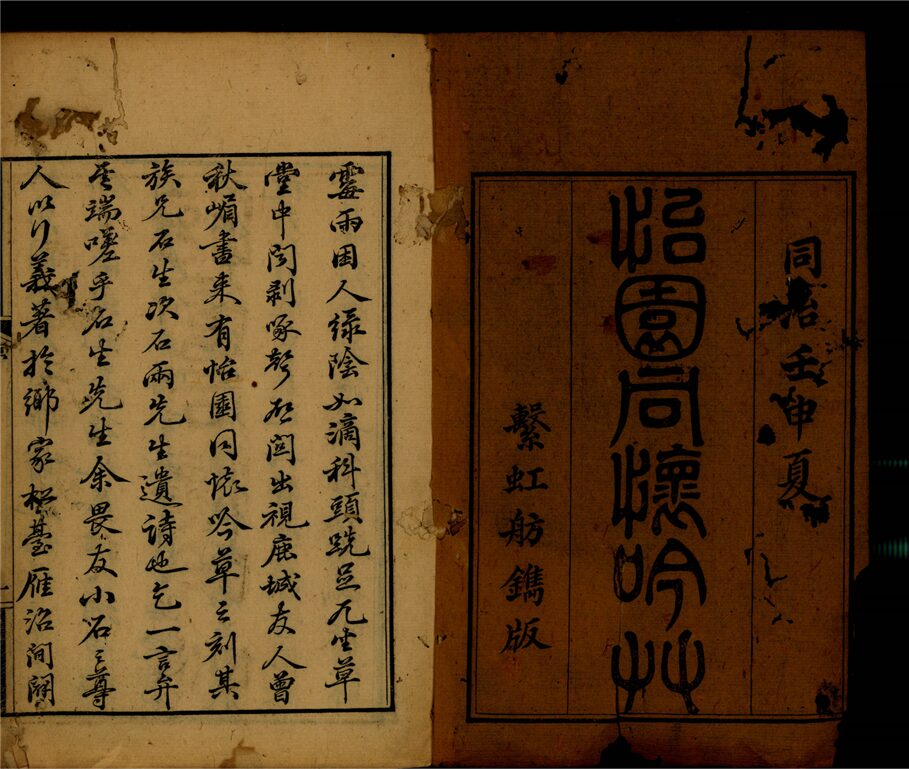 同治壬申夏
怡園同懷吟艸
繫虹舫鐫版
霪雨困人綠陰如滴科頭跣足兀坐草
堂中聞剥啄聲啟關出視鹿城友人曾
秋嵋書來有怡園同懷吟草之刻其
族兄石生次石兩先生遺詩也乞一言弁
其端嗟乎石生先生余畏友小石之尊
人以行義著於鄉家松臺雁沼間闢